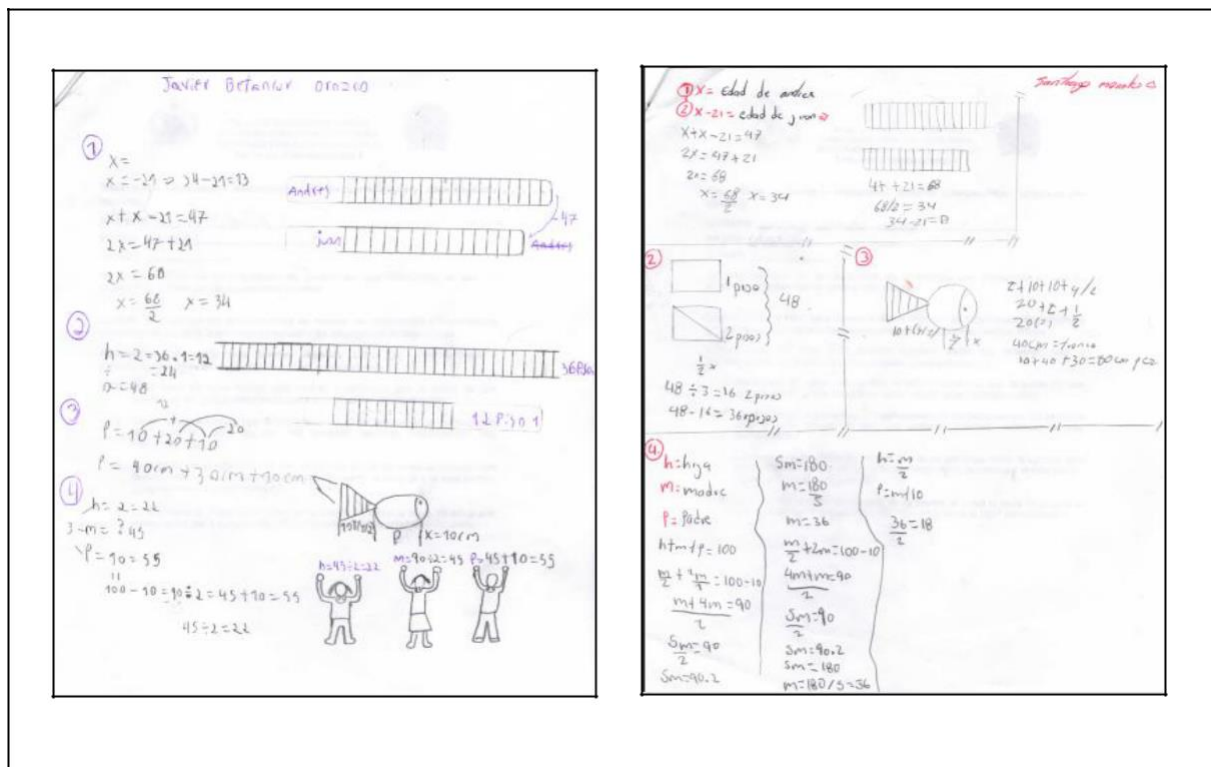 Javier Betancur Orozco
①
x=
x=-21 ⇒ 34-21=13
x+x-21=47
2x=47+21
2x=68
x=68/2 x=34
Andres
-47
juan
②
h=2=36.1=12
=24
a=48
36 Piso
12 Piso 1
③
P=10+20+10 20
P=40cm+30cm+10cm
P x=10cm
④
h=2=22
3-m=?45
P=10=55
100-10=90÷2=45+10=55
45÷2=22
h=45÷2=22
m=90÷2=45
P=45+10=55
Santiago
① x= Edad de andres
② x-21= edad de juan
x+x-21=47
2x=47+21
2x=68
x=68/2 x=34
47+21=68
68/2=34
34-21=13
②
1 piso
2 pisos
48
1/2 x
48÷3=16 2 pisos
48-16=36 pisos
③
20+2+1/2
40cm=tronco
10+40+30=80cm pez
④
h=hija
m=madre
P=Padre
h+m+p=100
=100-10
m+4m=90
2
5m=90
2
5m=90.2
5m=180
m=180
5
m=36
m/2+2m=100-10
4m+m=90
2
5m=90
2
5m=90.2
5m=180
m=180/5=36
h=m
2
P=m+10
36=18
2